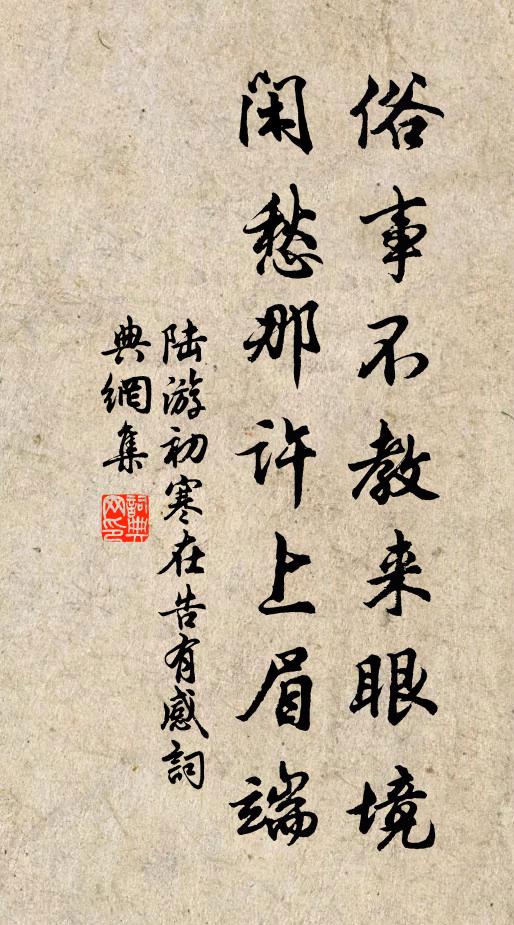 俗事不教来眼境
闲愁那许上眉端
陆游初寒在告有感詞
典網集
詞典
网印